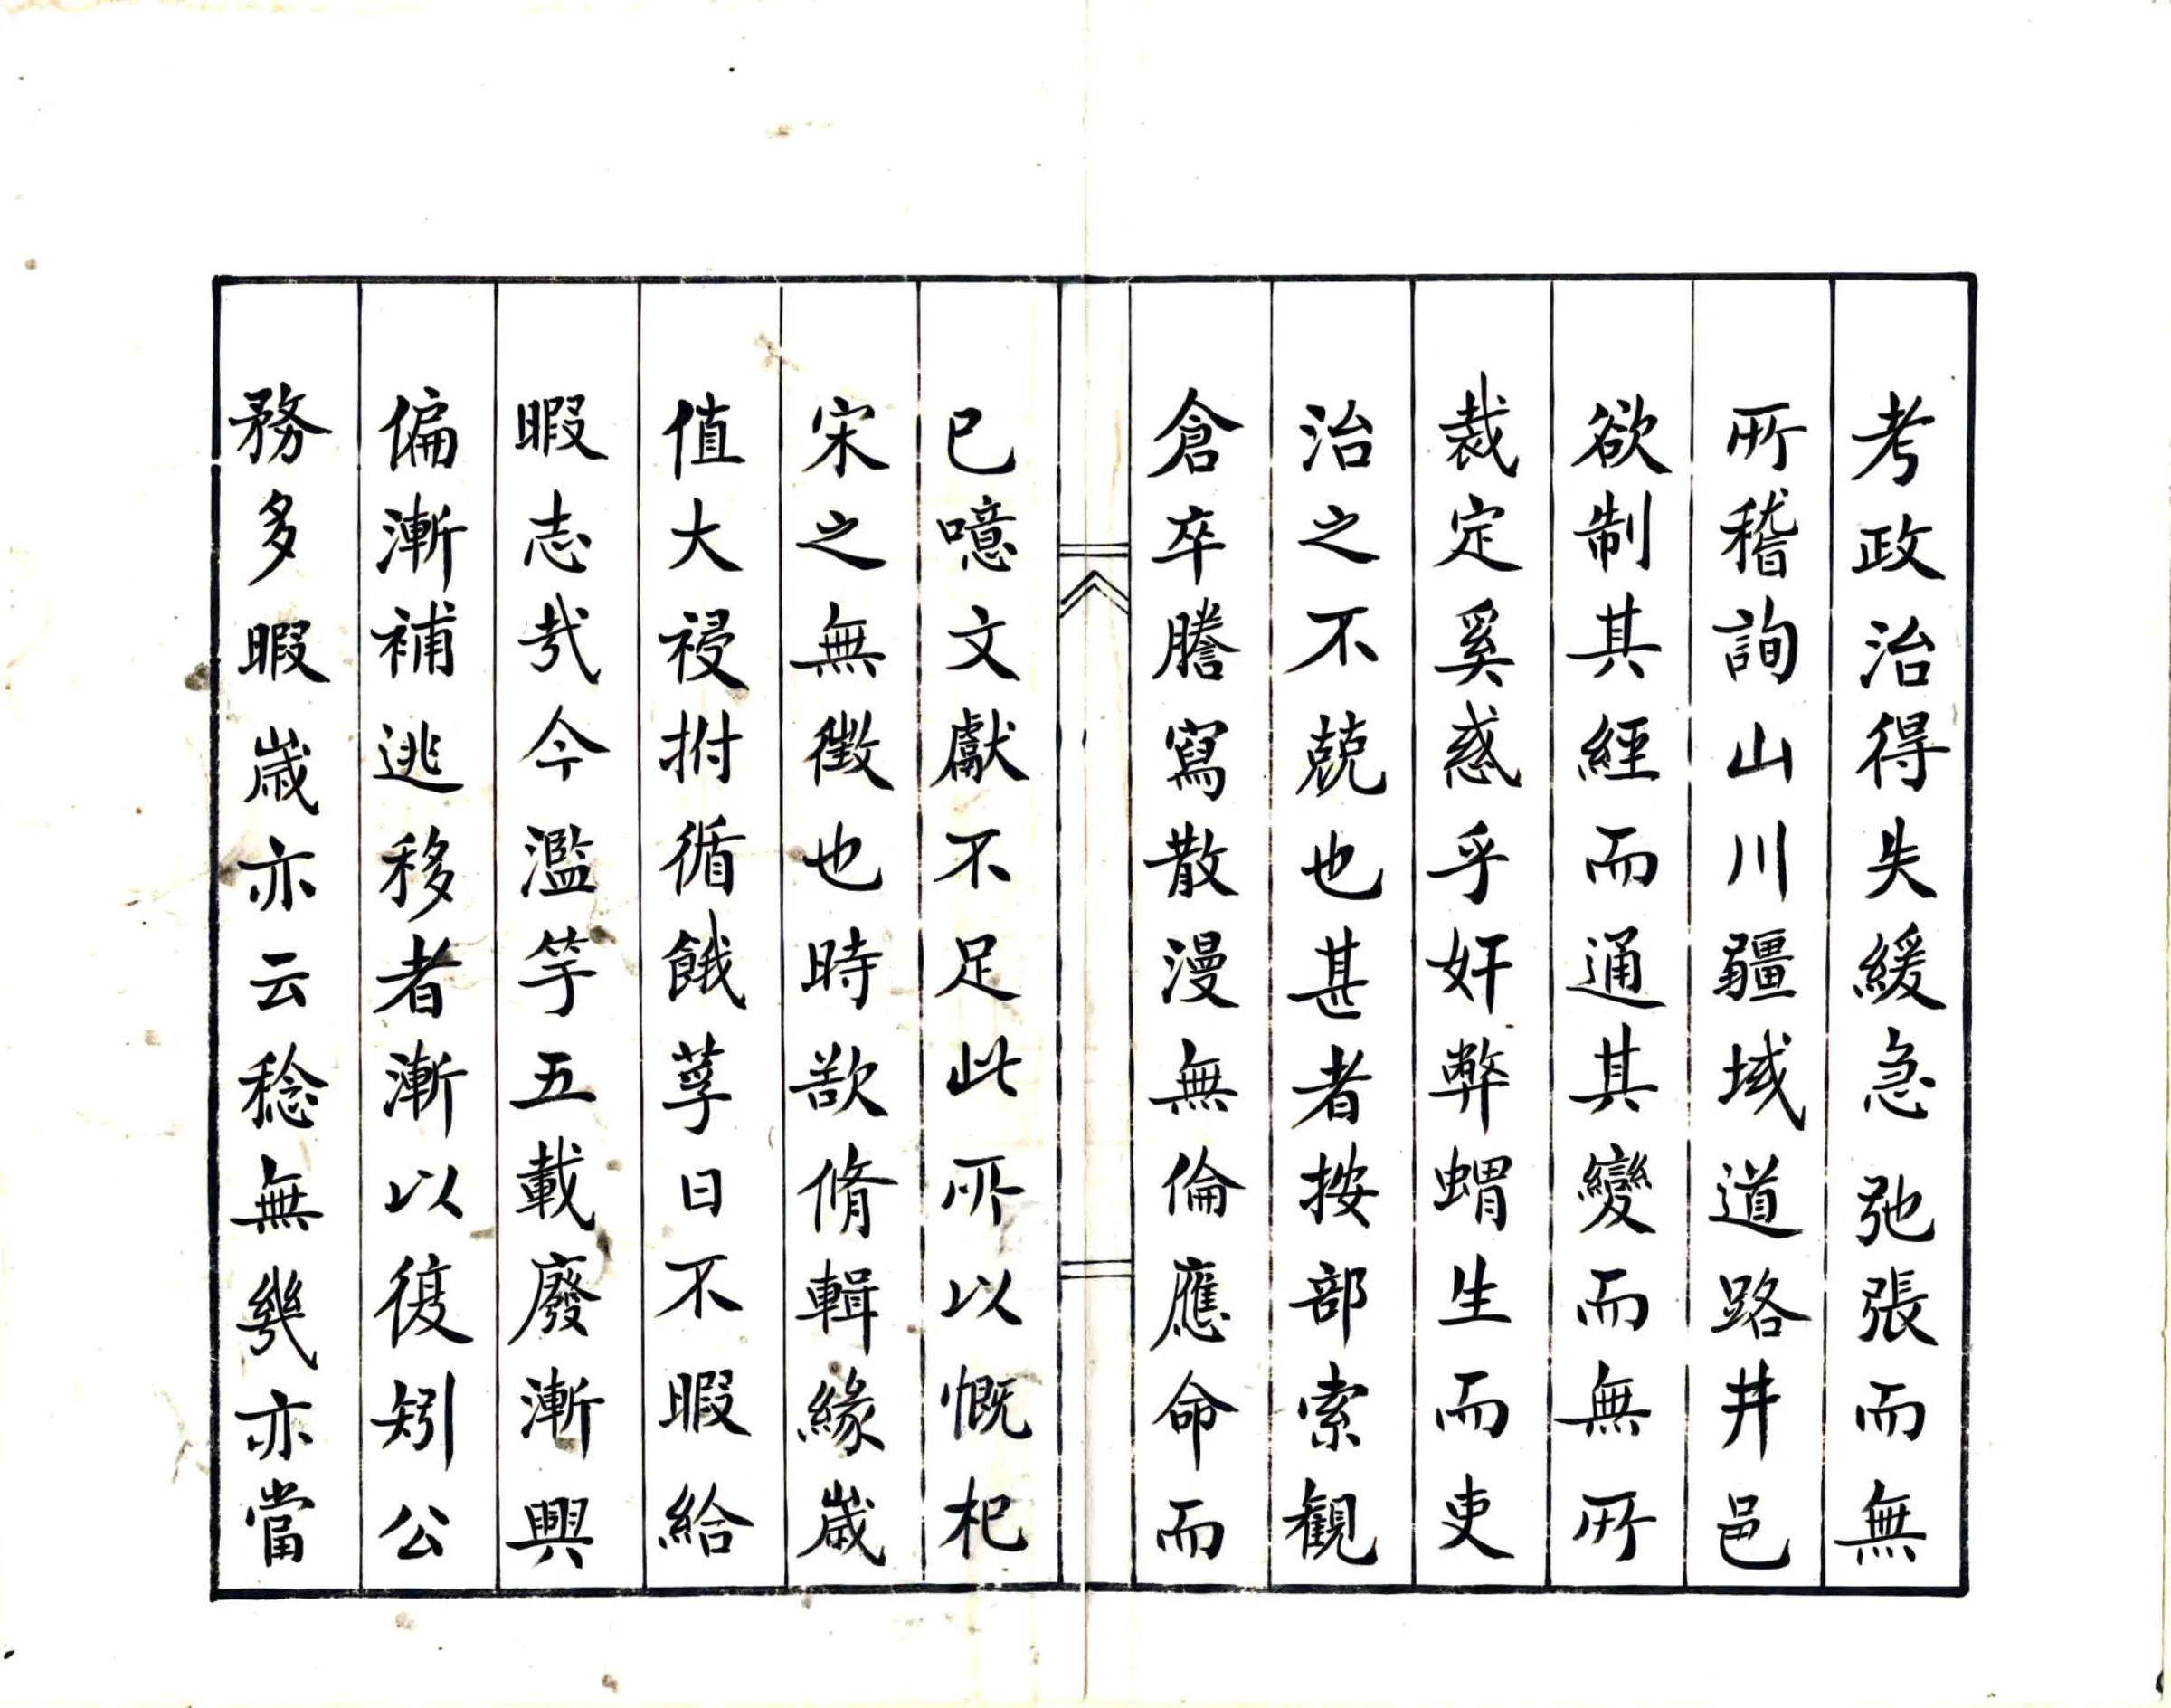 考政治得失緩急弛張而無
所稽詢山川疆域道路井邑
欲制其經而通其變而無所
裁定奚惑乎奸弊蝟生而吏
治之不兢也甚者按部索観
倉卒謄寫散漫無倫應命而
已噫文獻不足此所以慨杞
宋之無徵也時欲脩輯緣歲
值大祲拊循餓莩日不暇給
暇志㢤今濫竽五載廢漸興
偏漸補逃移者漸以復矧公
務多暇歲亦云稔無幾亦當